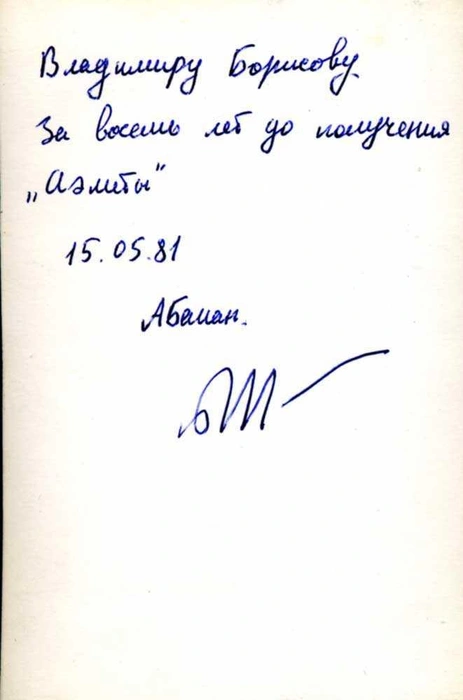 Владимиру Борисову
За восемь лет до получения
„Аэлиты"
15.05.81
Абакан.